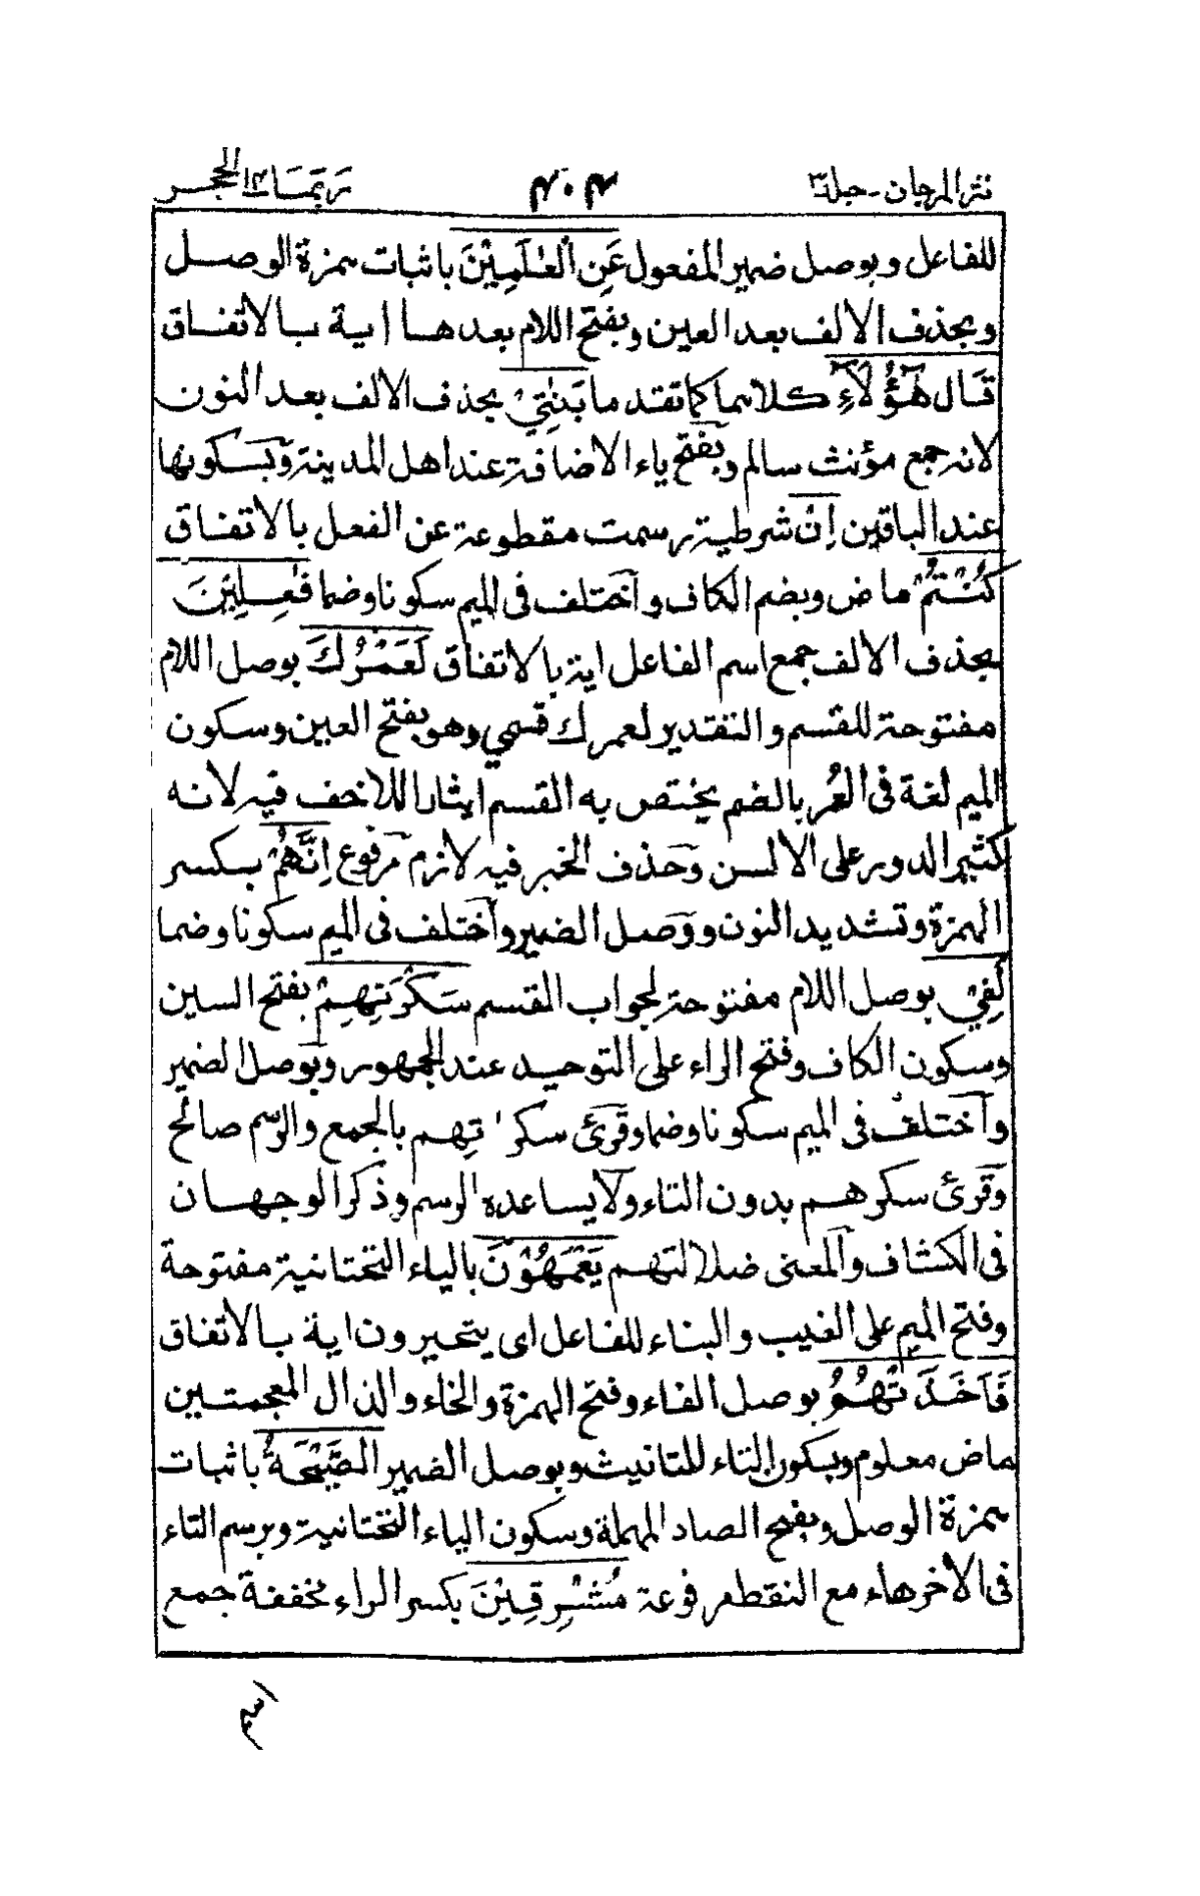 نثر المرجان - جلد ٣
٤٠٤
ربما ١٤ الحجر
للفاعل وبوصل ضمير المفعول عَنِ الْعٰلَمِيْنَ باثبات همزة الوصل
وبحذف الالف بعد العين وبفتح اللام بعدها اية بالاتفاق
قَالَ هٰٓؤُلَآءِ كلاهما كما تقدما بَنٰتِيْ بحذف الالف بعد النون
لانه جمع مؤنث سالم وبفتح ياء الاضافة عند اهل المدينة وبسكونها
عند الباقين اِنْ شرطية رسمت مقطوعة عن الفعل بالاتفاق
كُنْتُمْ ماض وبضم الكاف واختلف فى الميم سكونا وضما فٰعِلِيْنَ
بحذف الالف جمع اسم الفاعل اية بالاتفاق لَعَمْرُكَ بوصل اللام
مفتوحة للقسم والتقدير لعمرك قسمي وهو بفتح العين وسكون
الميم لغة فى العُمر بالضم يختص به القسم ايثارا للاخف فيه لانه
كثير الدور على الالسن وحذف الخبر فيه لازم مرفوع اِنَّهُمْ بكسر
الهمزة وتشديد النون ووصل الضمير واختلف فى الميم سكونا وضما
لَفِيْ بوصل اللام مفتوحة لجواب القسم سَكْرَتِهِمْ بفتح السين
وسكون الكاف وفتح الراء على التوحيد عند الجمهور وبوصل الضمير
واختلف فى الميم سكونا وضما وقرئ سكراتهم بالجمع والرسم صالح
وقرئ سكرهم بدون التاء ولا يساعده الرسم وذكر الوجهان
فى الكشاف والمعنى ضلالتهم يَعْمَهُوْنَ بالياء التحتانية مفتوحة
وفتح الميم على الغيب والبناء للفاعل اى يتحيرون اية بالاتفاق
فَاَخَذَتْهُمُ بوصل الفاء وفتح الهمزة والخاء والذال المعجمتين
ماض معلوم وبسكون التاء للتانيث وبوصل الضمير الصَّيْحَةُ باثبات
همزة الوصل وبفتح الصاد المهملة وسكون الياء التحتانية وبرسم التاء
فى الأخر هاء مع النقط مرفوعة مُشْرِقِيْنَ بكسر الراء مخففة جمع
اسم